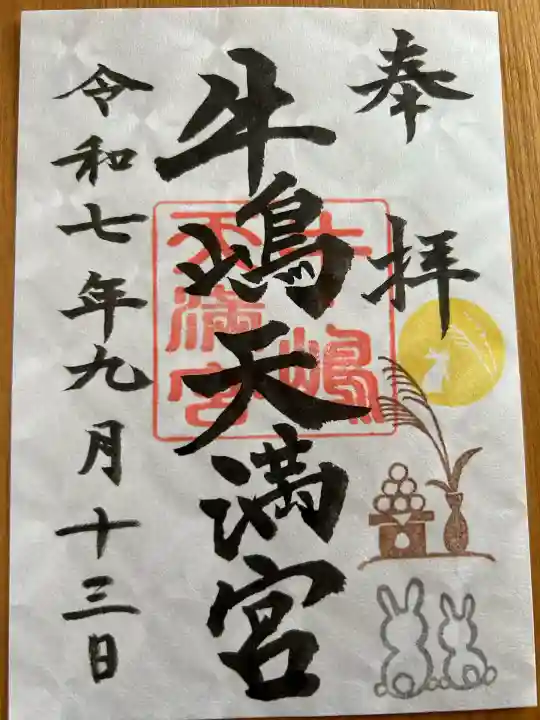 奉拝
牛嶋天満宮
牛嶋天満宮
令和七年九月十三日